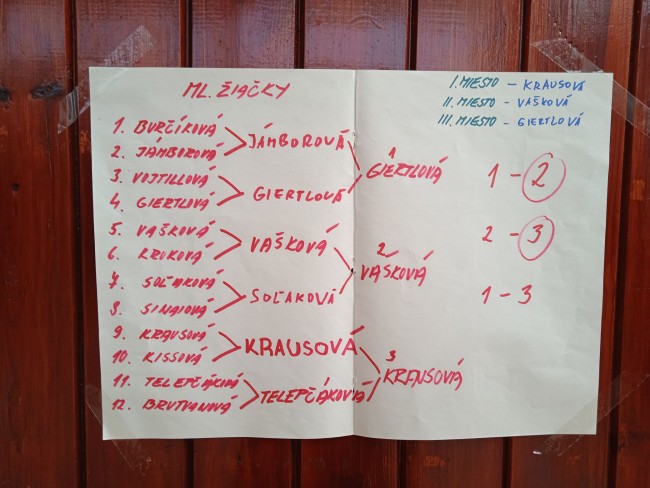 ML. ŽIAČKY
I. MIESTO - KRAUSOVÁ
II. MIESTO - VAŠKOVÁ
III. MIESTO - GIERTLOVÁ
1. BURČÍKOVÁ
2. JÁMBOROVÁ
3. VOJTILLOVÁ
4. GIERTLOVÁ
5. VAŠKOVÁ
6. KROKOVÁ
7. SOĽAKOVÁ
8. SINAIOVÁ
9. KRAUSOVÁ
10. KISSOVÁ
11. TELEPČÁKOVÁ
12. BRUTVANOVÁ
JÁMBOROVÁ
GIERTLOVÁ
VAŠKOVÁ
SOĽAKOVÁ
KRAUSOVÁ
TELEPČÁKOVÁ
1
GIERTLOVÁ
2
VAŠKOVÁ
3
KRAUSOVÁ
1 - 2
2 - 3
1 - 3